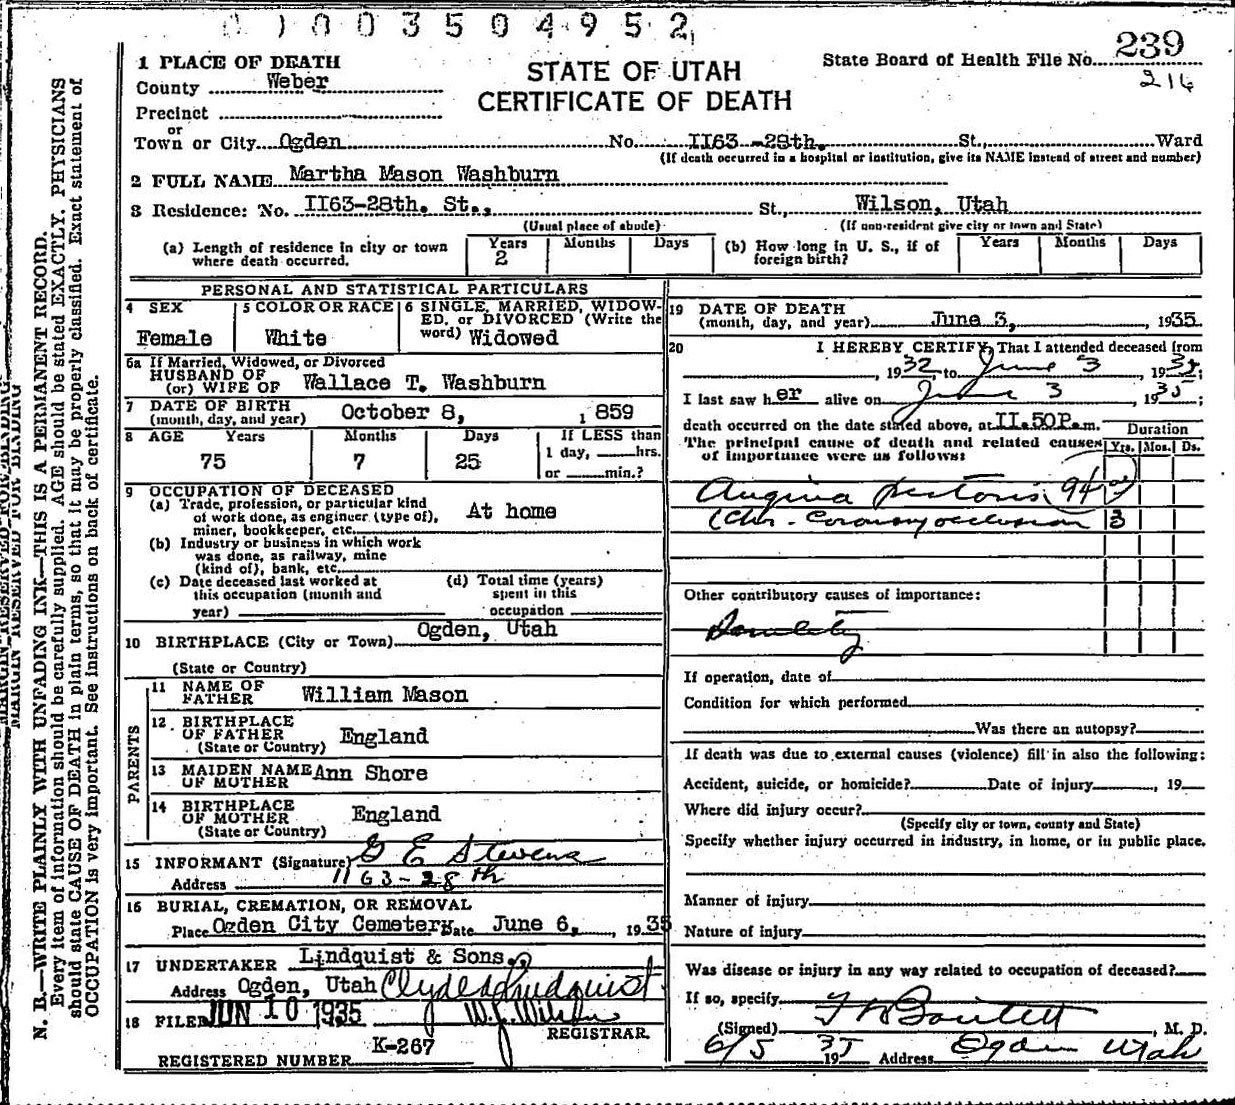 0 ) 0 0 3 5 0 4 9 5 2
239
State Board of Health File No.
216
STATE OF UTAH
CERTIFICATE OF DEATH
1 PLACE OF DEATH
County Weber
Precinct
or
Town or City Ogden No. II63 -28th. St., Ward
(If death occurred in a hospital or institution, give its NAME instead of street and number)
2 FULL NAME Martha Mason Washburn
3 Residence: No. II63-28th. St., St., Wilson, Utah
(Usual place of abode) (If non-resident give city or town and State)
(a) Length of residence in city or town where death occurred. Years 2 Months Days
(b) How long in U. S., if of foreign birth? Years Months Days
PERSONAL AND STATISTICAL PARTICULARS
4 SEX Female
5 COLOR OR RACE White
6 SINGLE, MARRIED, WIDOW-
ED, or DIVORCED (Write the
word) Widowed
6a If Married, Widowed, or Divorced
HUSBAND OF
(or) WIFE OF Wallace T. Washburn
7 DATE OF BIRTH
(month, day, and year) October 8, 1859
8 AGE Years Months Days If LESS than
75 7 25 1 day, hrs.
or min.?
9 OCCUPATION OF DECEASED
(a) Trade, profession, or particular kind
of work done, as engineer (type of),
miner, bookkeeper, etc. At home
(b) Industry or business in which work
was done, as railway, mine
(kind of), bank, etc.
(c) Date deceased last worked at
this occupation (month and
year)
(d) Total time (years)
spent in this
occupation
10 BIRTHPLACE (City or Town) Ogden, Utah
(State or Country)
PARENTS
11 NAME OF
FATHER William Mason
12 BIRTHPLACE
OF FATHER England
(State or Country)
13 MAIDEN NAME
OF MOTHER Ann Shore
14 BIRTHPLACE
OF MOTHER England
(State or Country)
15 INFORMANT (Signature) G E Stevens
Address 1163-28th
16 BURIAL, CREMATION, OR REMOVAL
Place Ogden City Cemetery Date June 6, 1935
17 UNDERTAKER Lindquist & Sons.
Address Ogden, Utah Clyde Lindquist
18 FILED JUN 10 1935 W. J. Wilson
REGISTRAR
K-267
REGISTERED NUMBER
19 DATE OF DEATH
(month, day, and year) June 3, 1935
20 I HEREBY CERTIFY, That I attended deceased from
, 1932, to June 3, 1935;
I last saw her alive on June 3, 1935;
death occurred on the date stated above, at II.50P.m.
The principal cause of death and related causes
of importance were as follows:
Duration
Yrs. Mos. Ds.
Angina Pectoris 94
(Chr. Coronary occlusion 3
Other contributory causes of importance:
If operation, date of
Condition for which performed
Was there an autopsy?
If death was due to external causes (violence) fill in also the following:
Accident, suicide, or homicide? Date of injury , 19
Where did injury occur?
(Specify city or town, county and State)
Specify whether injury occurred in industry, in home, or in public place.
Manner of injury
Nature of injury
Was disease or injury in any way related to occupation of deceased?
If so, specify
(Signed) , M. D.
6/5 1935 Address Ogden Utah
MARGIN RESERVED FOR BINDING
N. B.—WRITE PLAINLY WITH UNFADING INK—THIS IS A PERMANENT RECORD.
Every item of information should be carefully supplied. AGE should be stated EXACTLY. PHYSICIANS
should state CAUSE OF DEATH in plain terms, so that it may be properly classified. Exact statement of
OCCUPATION is very important. See instructions on back of certificate.